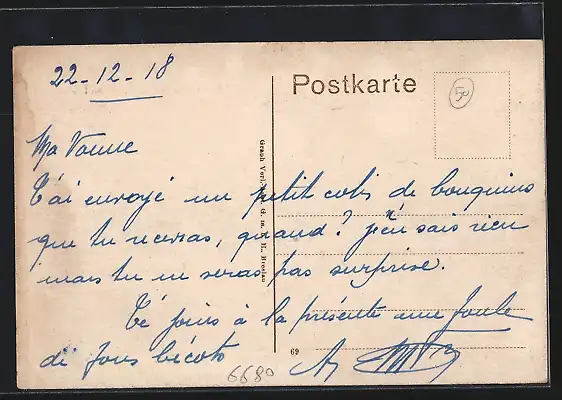 22-12-18
Postkarte
50
Ma Vonne
T'ai envoyé un petit colis de bouquins
que tu recevras, quand? j'en sais rien
mais tu ne seras pas surprise.
Té joins à la présente une foule
de fous bécots
69
6680